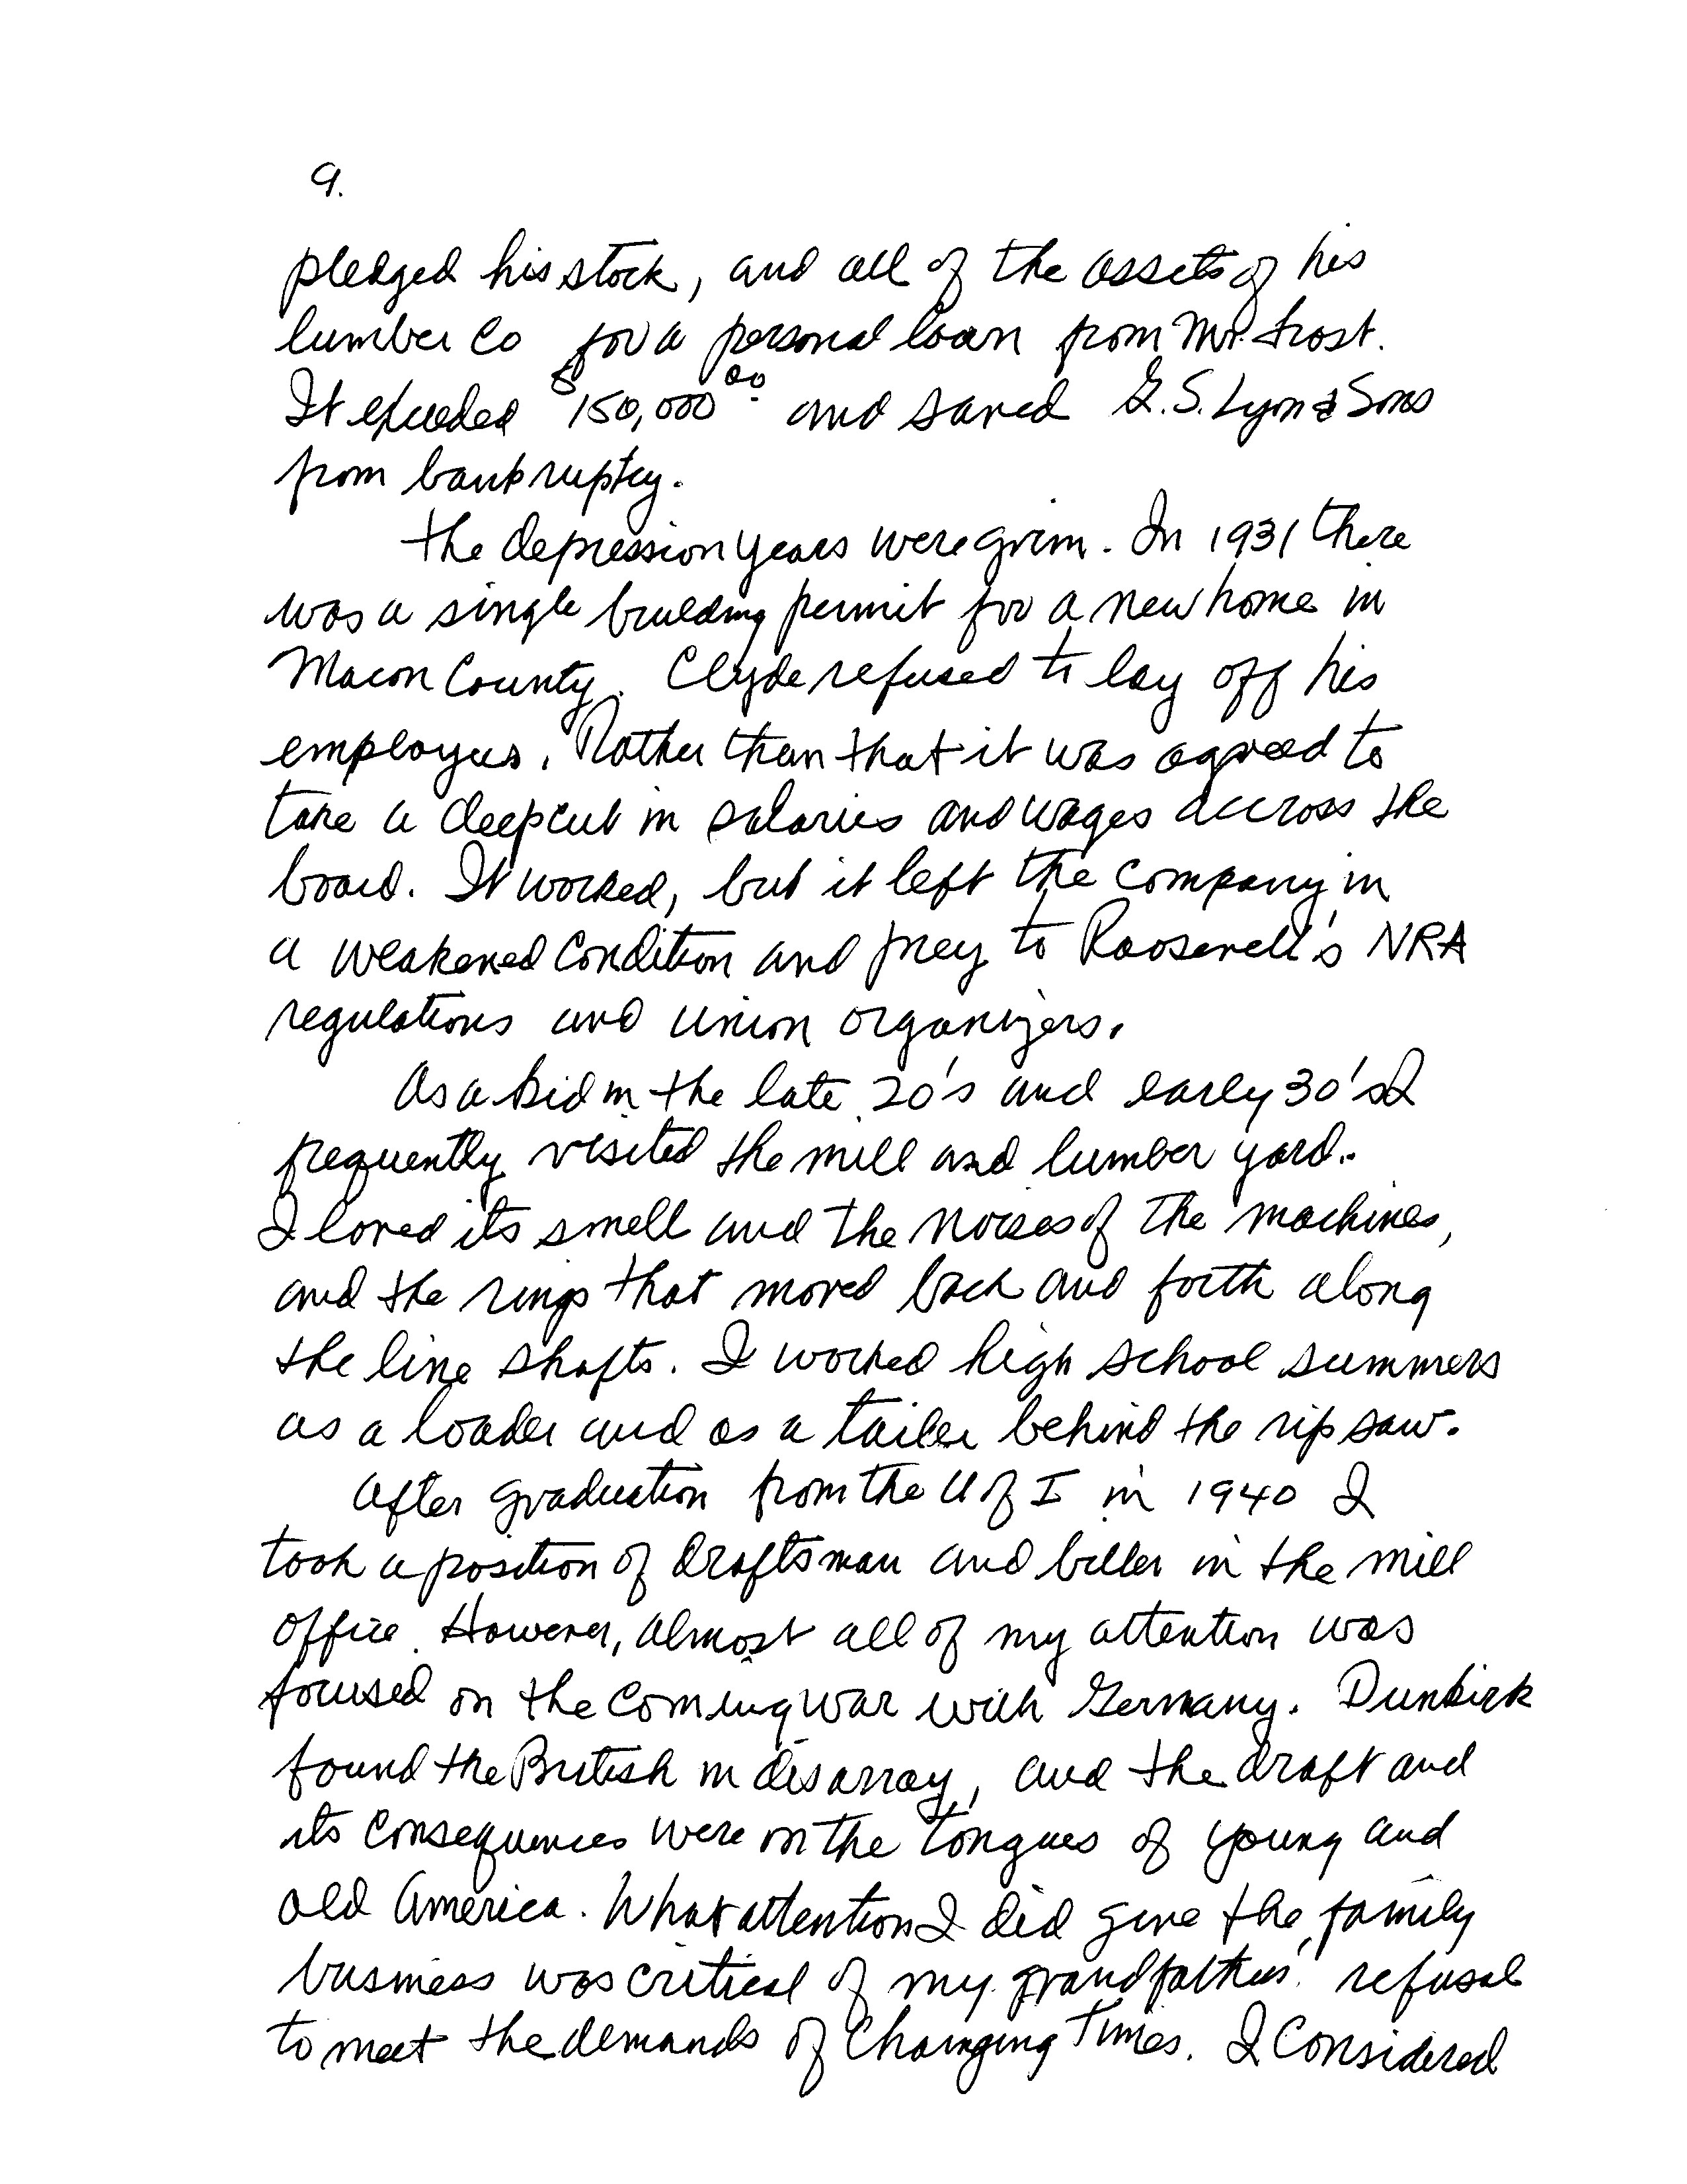 9.
pledged his stock, and all of the assets of his
lumber Co for a personal loan from Mr. Frost.
It exceeded $150,000.00 and saved G.S. Lyon & Sons
from bankruptcy.
The depression years were grim. In 1931 there
was a single building permit for a new home in
Macon County. Clyde refused to lay off his
employees. Rather than that it was agreed to
take a deep cut in salaries and wages accross the
board. It worked, but it left the company in
a weakened condition and prey to Roosevelt's NRA
regulations and union organizers.
As a kid in the late 20's and early 30's I
frequently visited the mill and lumber yard.
I loved its smell and the noises of the machines,
and the rings that moved back and forth along
the line shafts. I worked high school summers
as a loader and as a tailer behind the rip saw.
After graduation from the U of I in 1940 I
took a position of draftsman and biller in the mill
office. However, almost all of my attention was
focused on the coming war with Germany. Dunkirk
found the British in disarray, and the draft and
its consequences were on the tongues of young and
old America. What attention I did give the family
business was critical of my grandfathers' refusal
to meet the demands of changing times. I considered